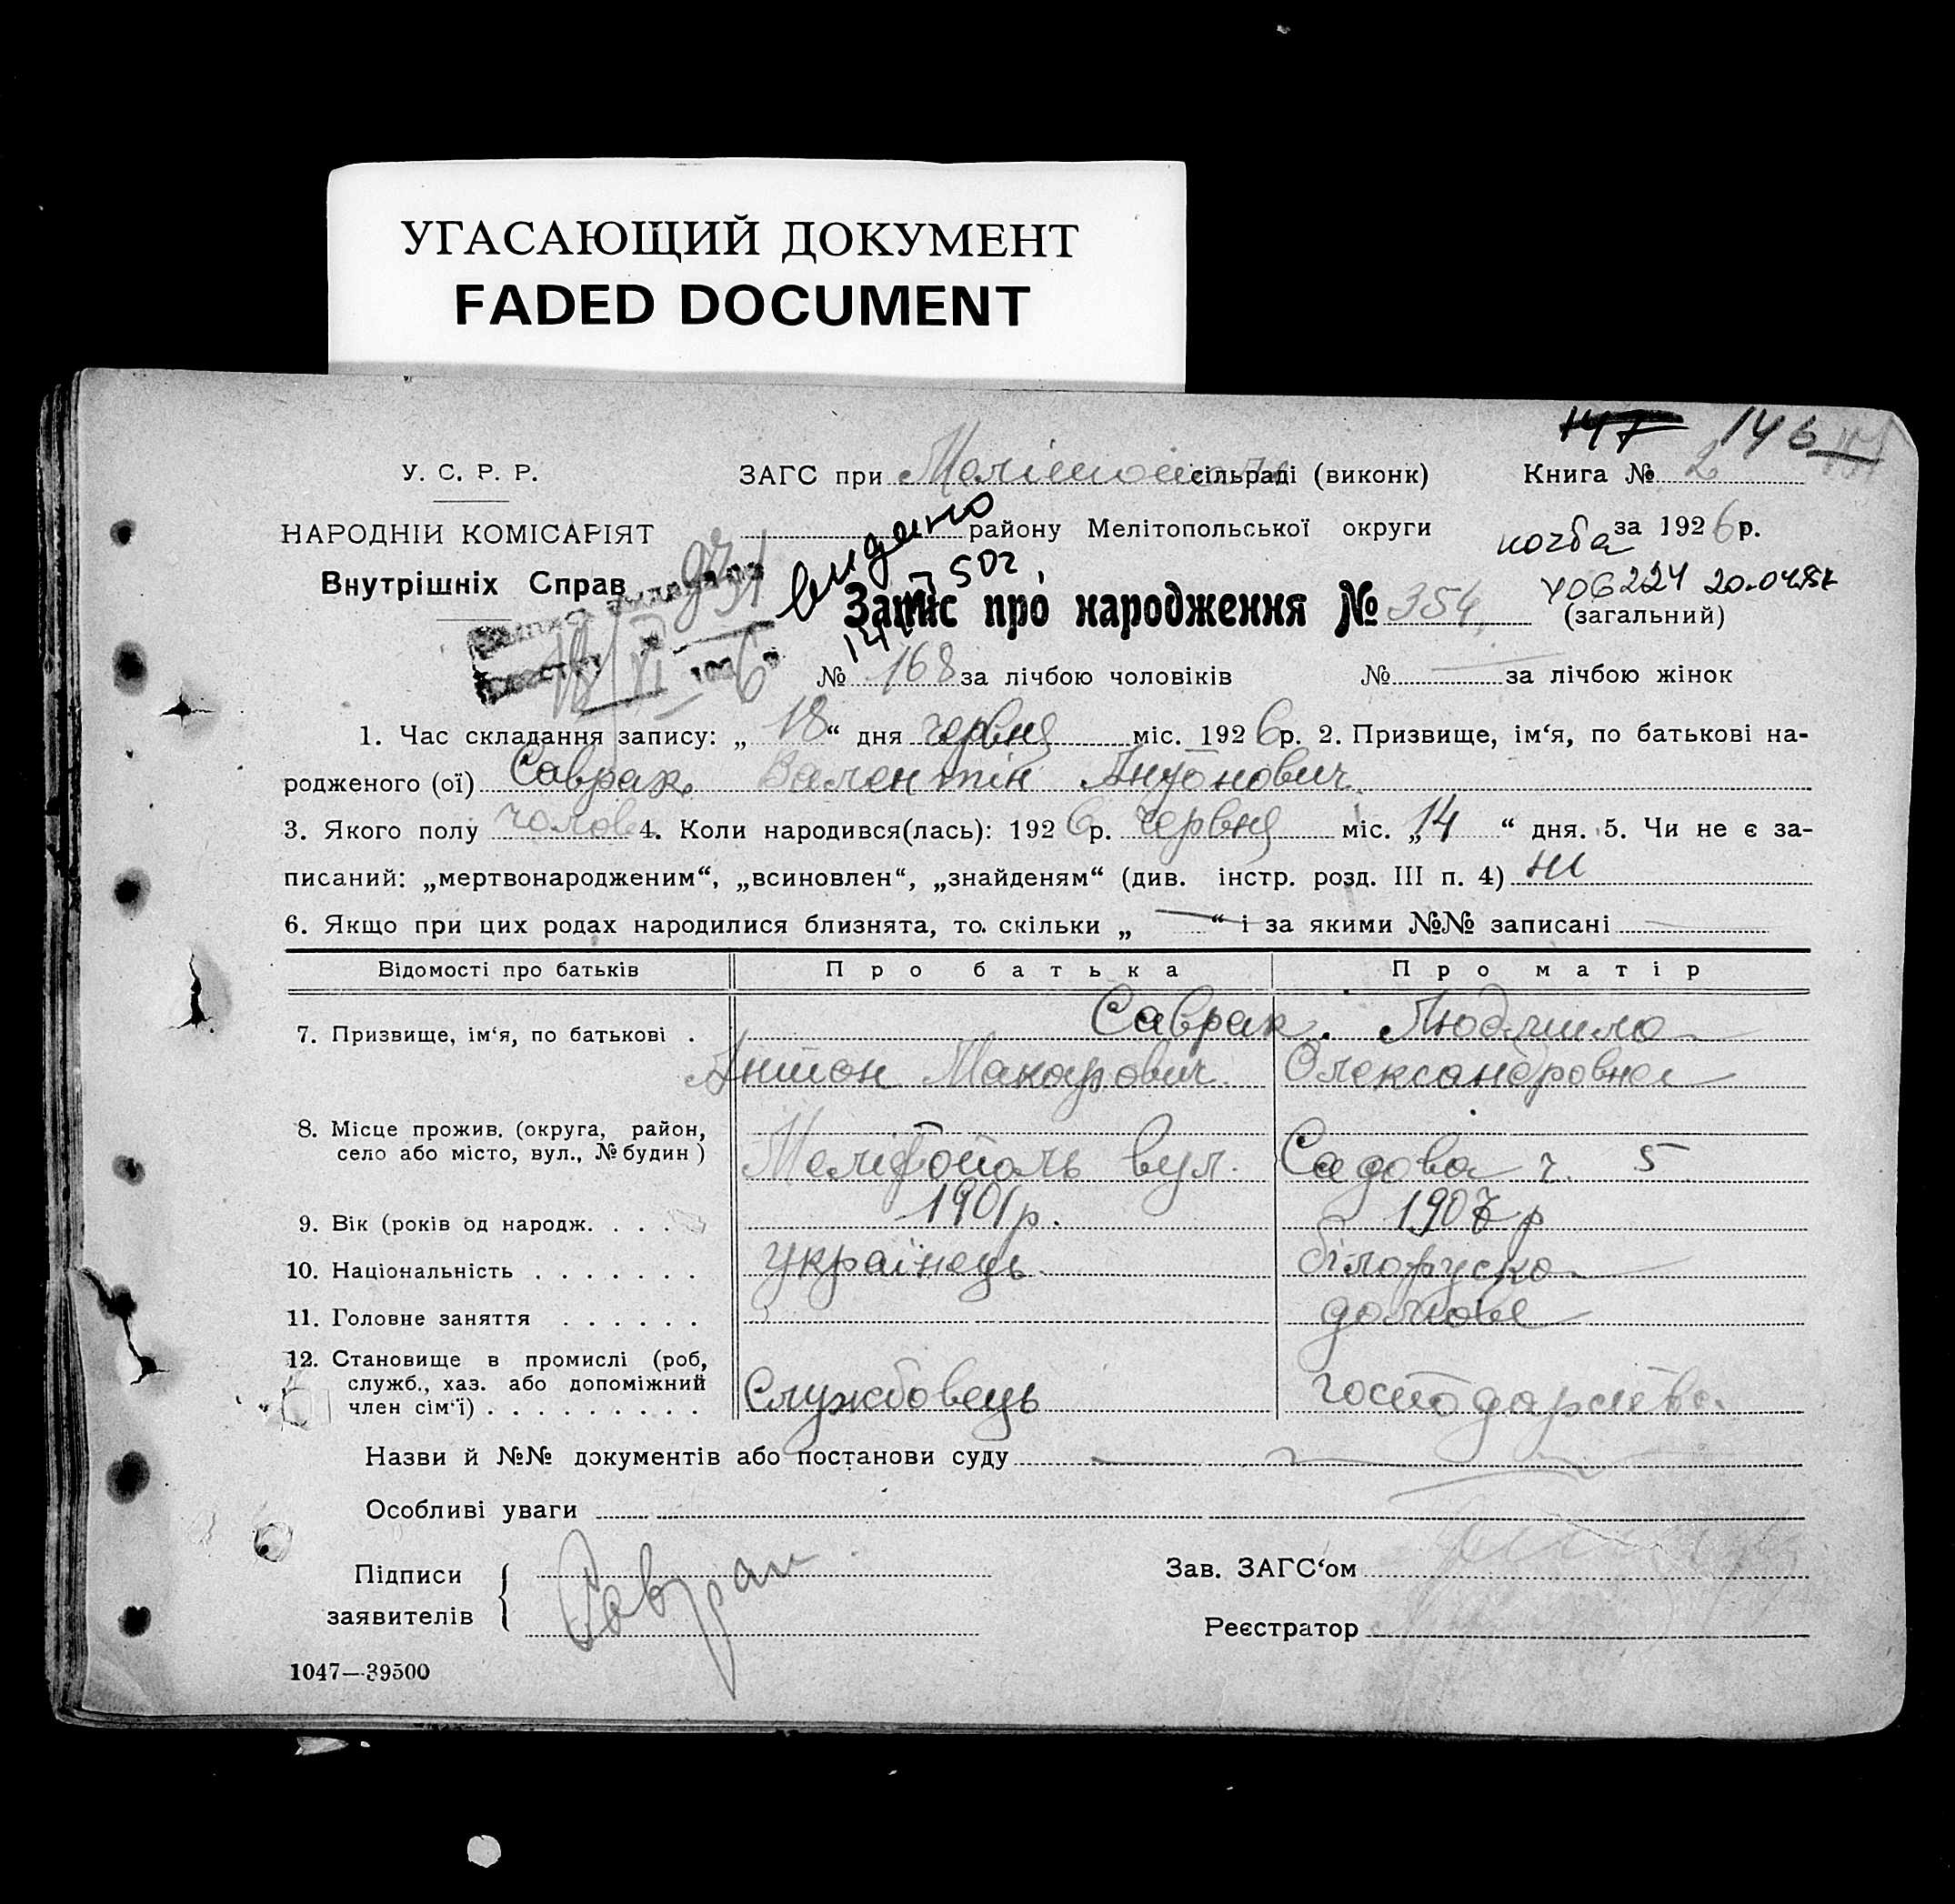 УГАСАЮЩИЙ ДОКУМЕНТ
FADED DOCUMENT
147 146
У. С. Р. Р. ЗАГС при Мелітополь сільраді (виконк) Книга № 2
НАРОДНІЙ КОМІСАРІЯТ району Мелітопольської округи за 1926 р.
видано
Внутрішніх Справ
Запис про народження № 354 (загальний)
№ 168 за лічбою чоловіків № — за лічбою жінок
1. Час складання запису: „18“ дня червня міс. 1926 р. 2. Призвище, ім‘я, по батькові на-
родженого (ої) Саврак Валентін Антонович
3. Якого полу чолов 4. Коли народився(лась): 1926 р. червня міс. „14“ дня. 5. Чи не є за-
писаний: „мертвонародженим“, „всиновлен“, „знайденям“ (див. інстр. розд. III п. 4) ні
6. Якщо при цих родах народилися близнята, то скільки „—“ і за якими №№ записані
Відомості про батьків Про батька Про матір
7. Призвище, ім‘я, по батькові . Саврак. Людмила
Антон Макарович Олександровна
8. Місце прожив. (округа, район,
село або місто, вул., № будин) Мелітополь вул. Садова ч. 5
9. Вік (років од народж. . . . 1901 р. 1907 р
10. Національність . . . . . . . українець білоруска
11. Головне заняття . . . . . . домове
12. Становище в промислі (роб,
служб., хаз. або допоміжний
член сім‘ї) . . . . . . . . . Службовець господарство.
Назви й №№ документів або постанови суду
Особливі уваги
Підписи Зав. ЗАГС‘ом
заявителів Саврак
Реєстратор
1047—39500